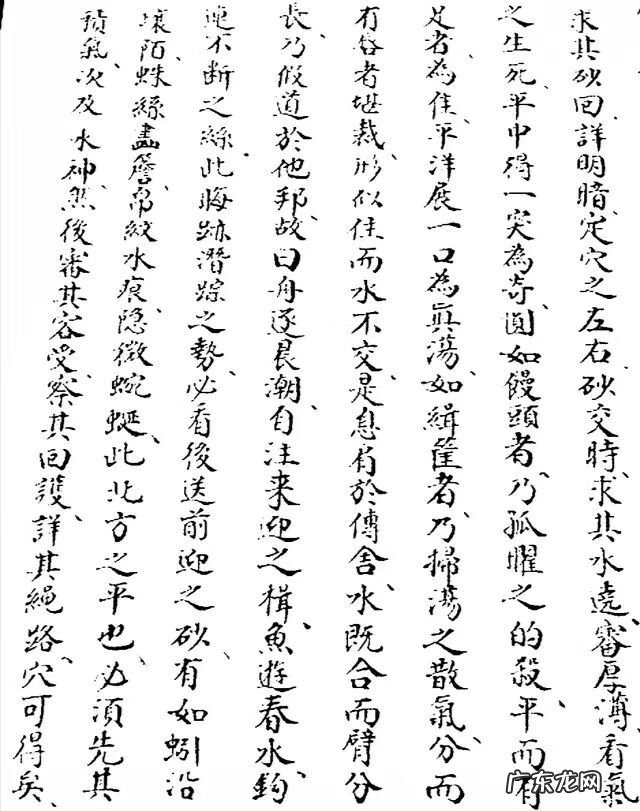 求其砂回詳明暗定穴之左右砂交時求其水遶審厚薄看氣
之生死平中得一突為奇圓如饅頭者乃孤曜之的殺平而有
足者為佳平洋展一口為真蕩如緝筐者乃掃蕩之散氣分而
有唇者堪裁形似住而水不交是息肩於傳舍水既合而臂分
長乃假道於他邦故曰舟逐晨潮自注来迎之楫魚遊春水鉤
連不断之絲此晦跡潛踪之勢必看後送前迎之砂有如蚓沿
壤陌蛛絲畫簷帛紋水痕隐微蜿蜒此北方之平也必須先其
積氣次及水神然後審其容受察其回護詳其繩路穴可得矣
广东龙网